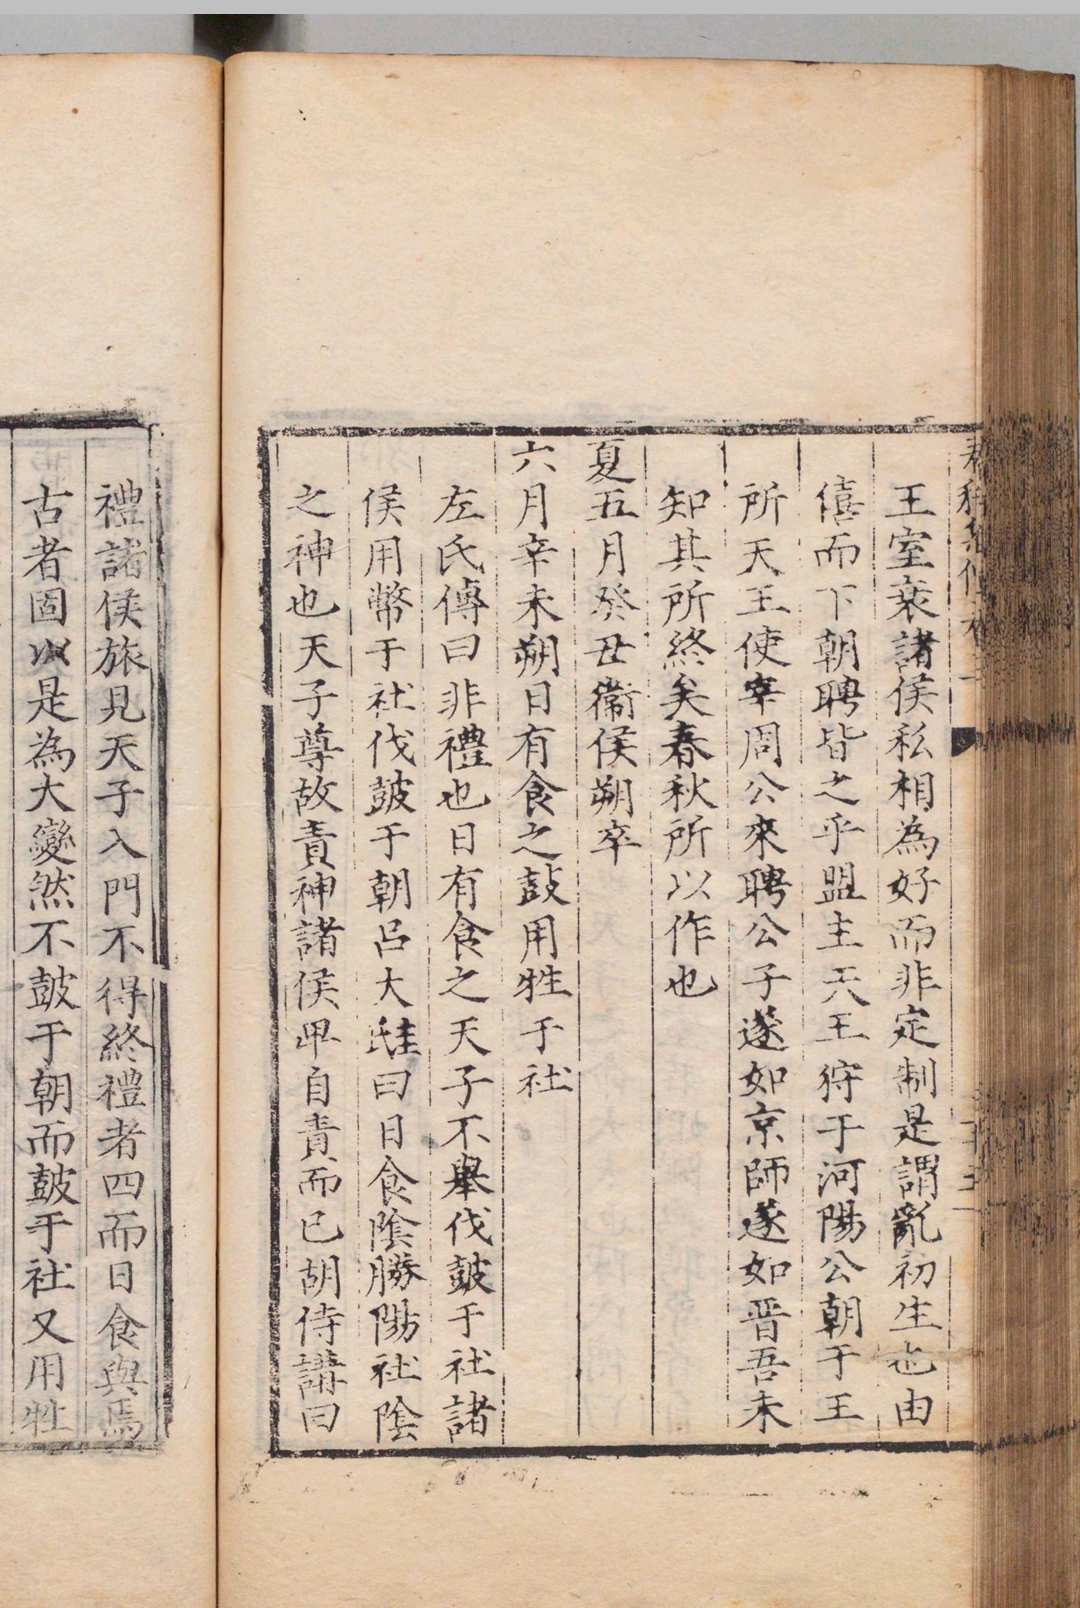 王室衰諸侯私相為好而非定制是謂亂初生也由
僖而下朝聘皆之乎盟主天王狩于河陽公朝于王
所天王使宰周公來聘公子遂如京師遂如晋吾未
知其所終矣春秋所以作也
夏五月癸丑衛侯朔卒
六月辛未朔日有食之鼓用牲于社
左氏傳曰非禮也日有食之天子不舉伐皷于社諸
侯用幣于社伐皷于朝吕大圭曰日食陰勝陽社陰
之神也天子尊故責神諸侯卑自責而已胡侍講曰
禮諸侯旅見天子入門不得終禮者四而日食與焉
古者固以是為大變然不皷于朝而皷于社又用牲